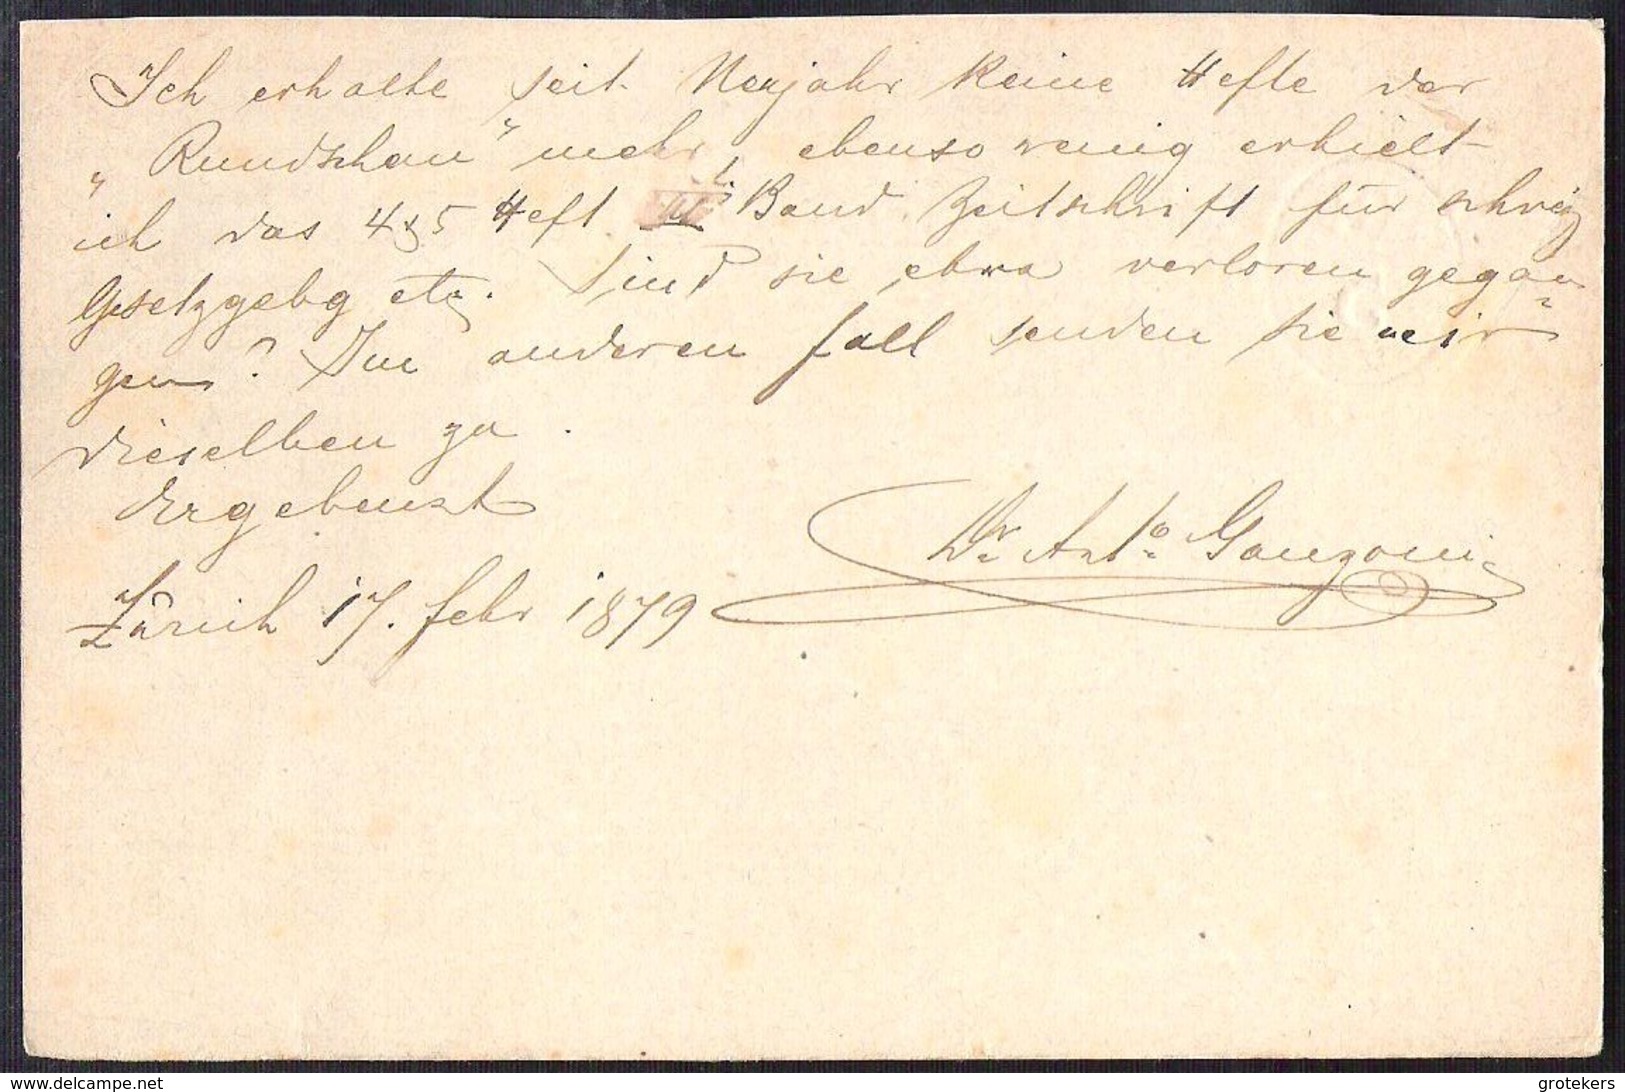 Ich erhalte seit Neujahr keine Hefte der
„Rundschau" mehr, ebenso wenig erhielt
ich das 4 & 5 Heft Band Zeitschrift für schweiz
Gesetzgebg etc. Sind sie etwa verloren gegan=
gen? Im anderen Fall senden Sie mir
dieselben zu.
Ergebenst
Dr. Anto. Ganzoni
Zürich 17. Febr 1879
delcampe.net
grotekers